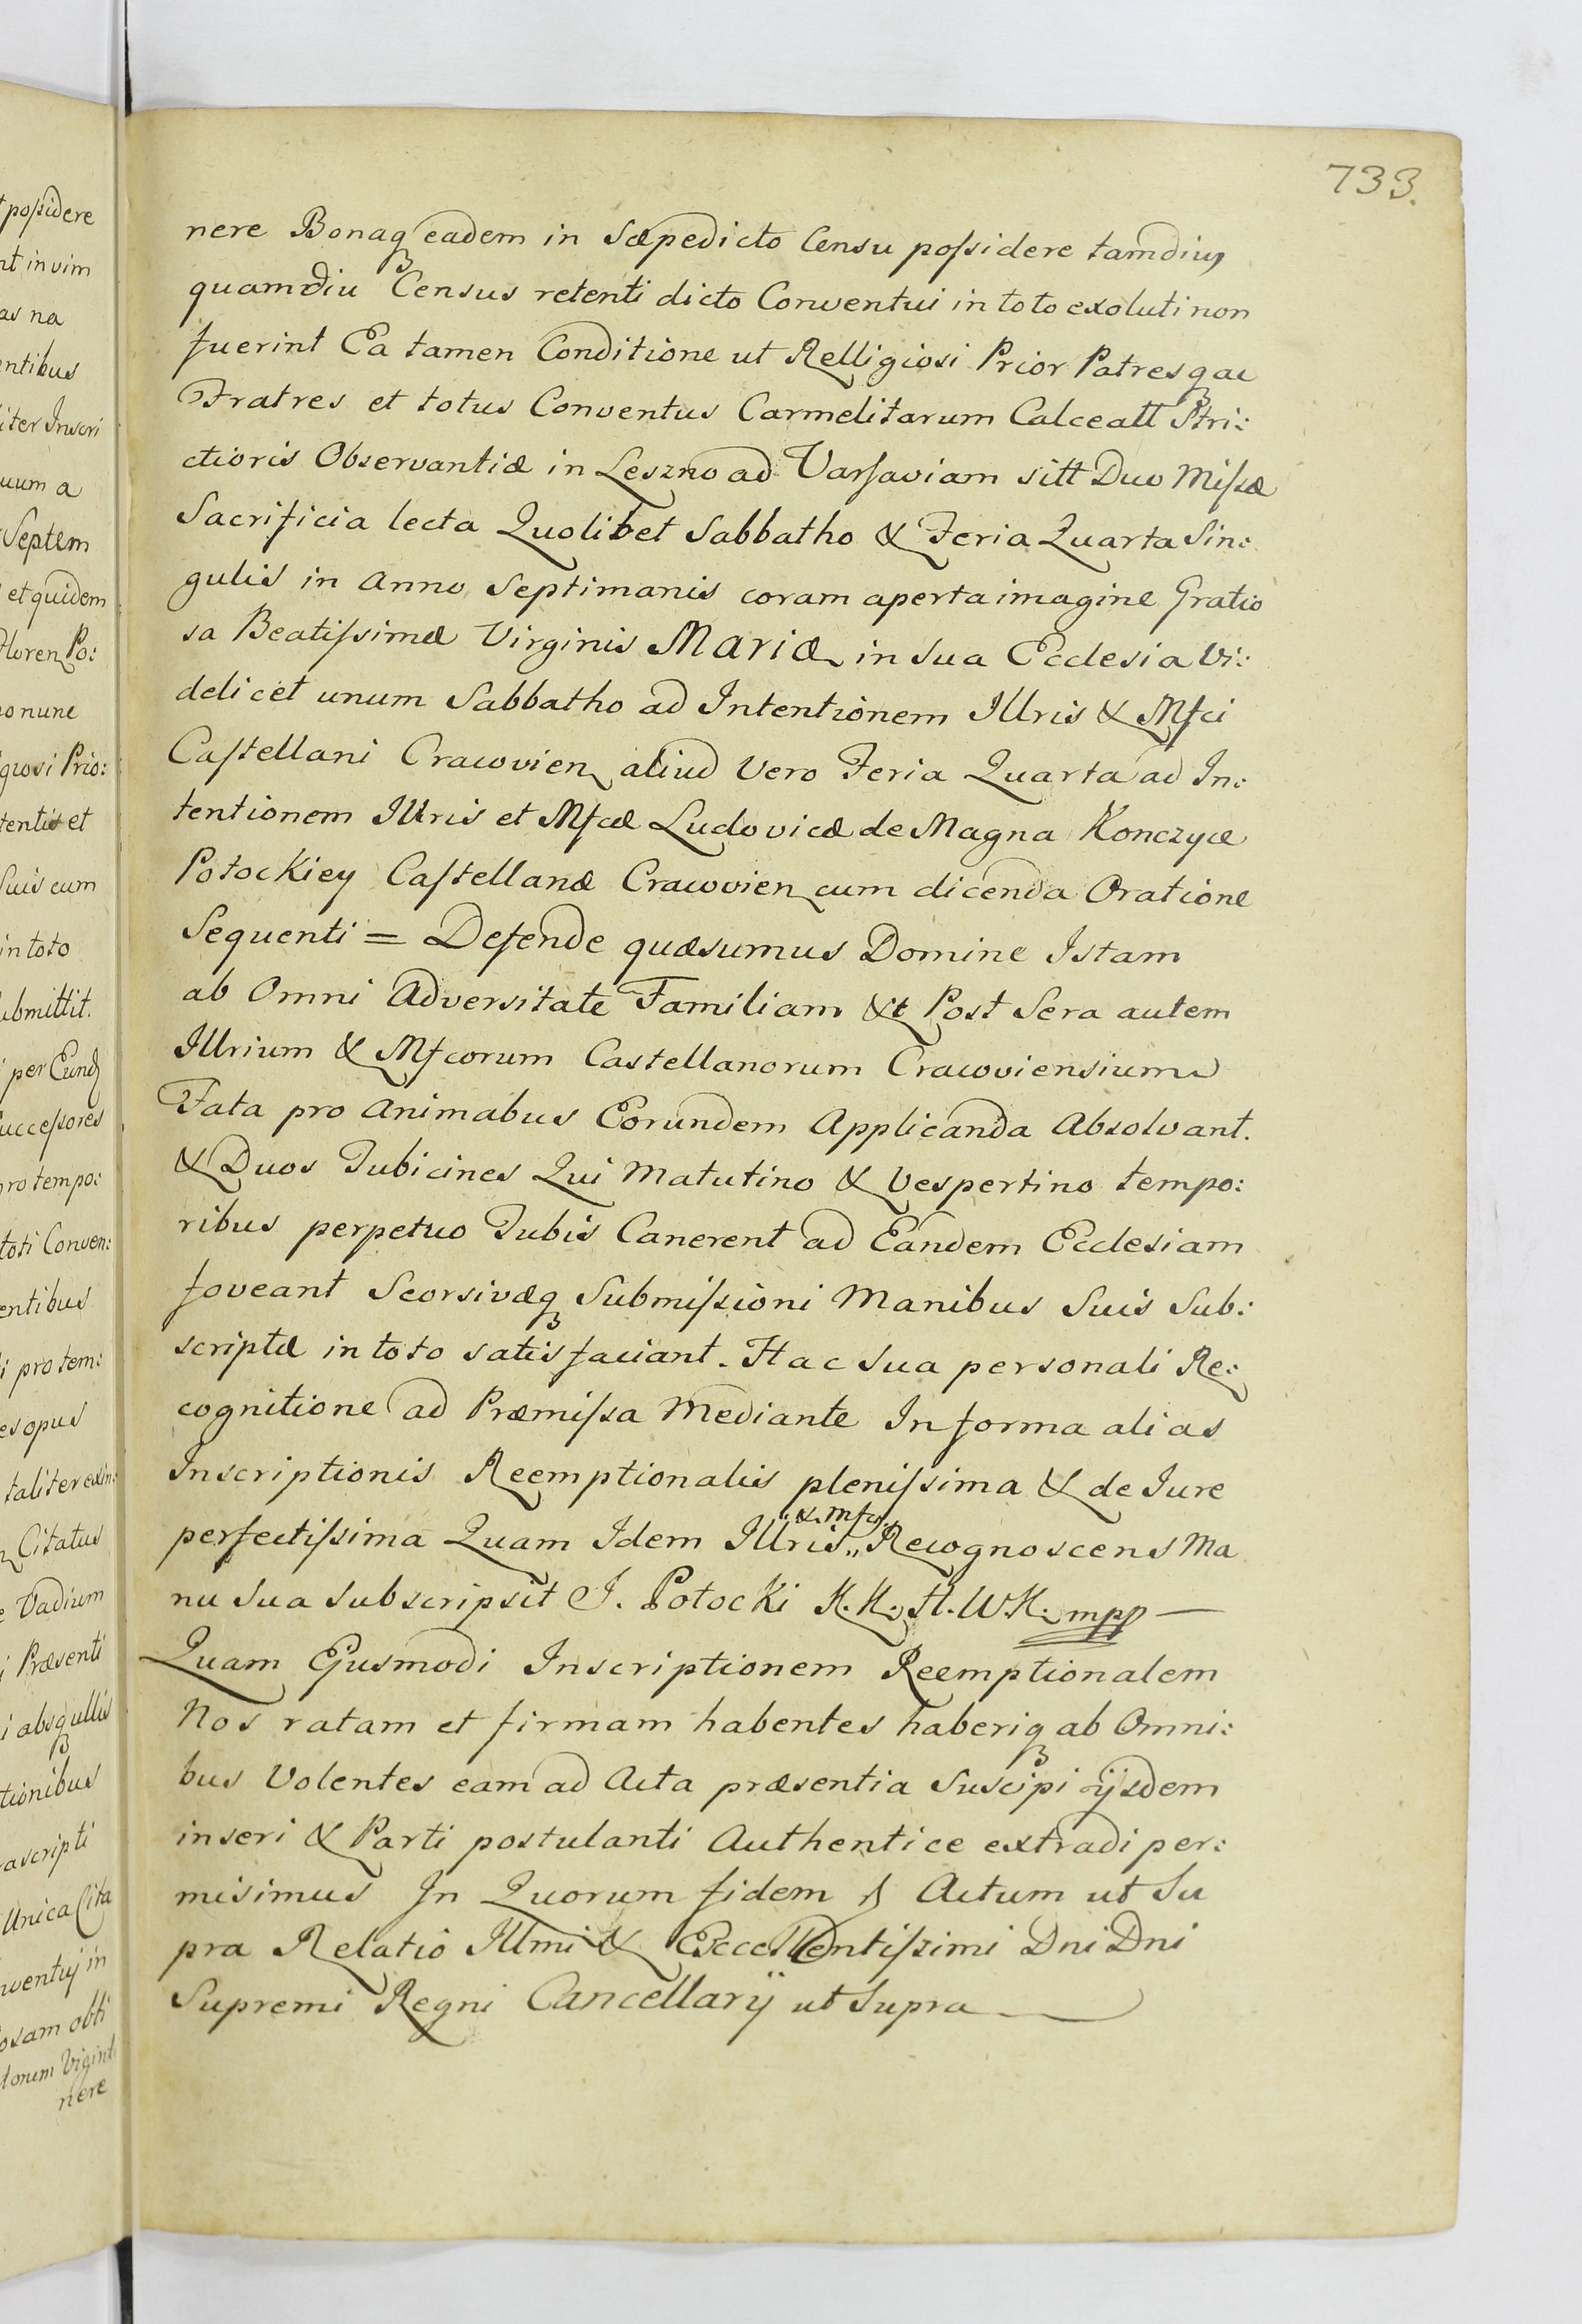 733.
nere Bonaq eadem in sæpedicto Censu poſsidere tamdiu
quamdiu Census retenti dicto Conventui in toto exoluti non
fuerint Ea tamen Conditione ut Relligiosi Prior Patresq ac
Fratres et totus Conventus Carmelitarum Calceatt Stri:
ctioris Observantiæ in Leszno ad Varſaviam sitt Duo Miſsæ
Sacrificia lecta Quolibet Sabbatho & Feria Quarta Sin:
gulis in Anno Septimanis coram aperta imagine Gratio
sa Beatiſsimæ Virginis MARIÆ in sua Ecclesia Vi:
delicet unum Sabbatho ad Intentionem Illris & Mfci
Caſtellani Cracovien aliud Vero Feria Quarta ad In:
tentionem Illris et Mfcæ Ludovicæ de Magna Konczyce
Potockiey Caſtellanæ Cracovien cum dicenda Oratione
Sequenti = Defende quæsumus Domine Istam
ab Omni Adversitate Familiam &t Post Sera autem
Illrium & Mfcorum Castellanorum Cracoviensium
Fata pro Animabus Eorundem Applicanda Absolvant.
& Duos Tubicines Qui Matutino & Vespertino tempo:
ribus perpetuo Tubis Canerent ad Eandem Ecclesiam
foveant Seorsivæq Submiſsioni Manibus Suis Sub:
scriptæ in toto satisfaciant. Hac sua personali Re:
cognitione ad Præmiſsa Mediante In forma alias
Inscriptionis Reemptionalis pleniſsima & de Jure
& Mfcs.
perfectiſsima Quam Idem Illris,, Recognoscens Ma
nu sua subscripsit J. Potocki K. K. H. W. K. mpp —
Quam Ejusmodi Inscriptionem Reemptionalem
Nos ratam et firmam habentes haberiq ab Omni:
bus Volentes eam ad Acta præsentia Suscipi ijsdem
inseri & Parti postulanti Authentice extradi per:
misimus In Quorum fidem Actum ut Su
pra Relatio Illmi & Excellentiſsimi Dni Dni
Supremi Regni Cancellarij ut Supra
poſsidere
nt in vim
as na
entibus
iter Inscri
uum a
Septem
et quidem
Floren Po:
nunc
giosi Prio:
tentis et
Suis cum
in toto
ubmittit.
per Eund
ucceſsores
pro tempo:
toti Conven:
entibus
i pro tem:
es opus
taliter
Citatus
Vadium
Præsenti
absq ullis
tionibus
ascripti
Unica Cita
in
osam obti
Viginti
nere